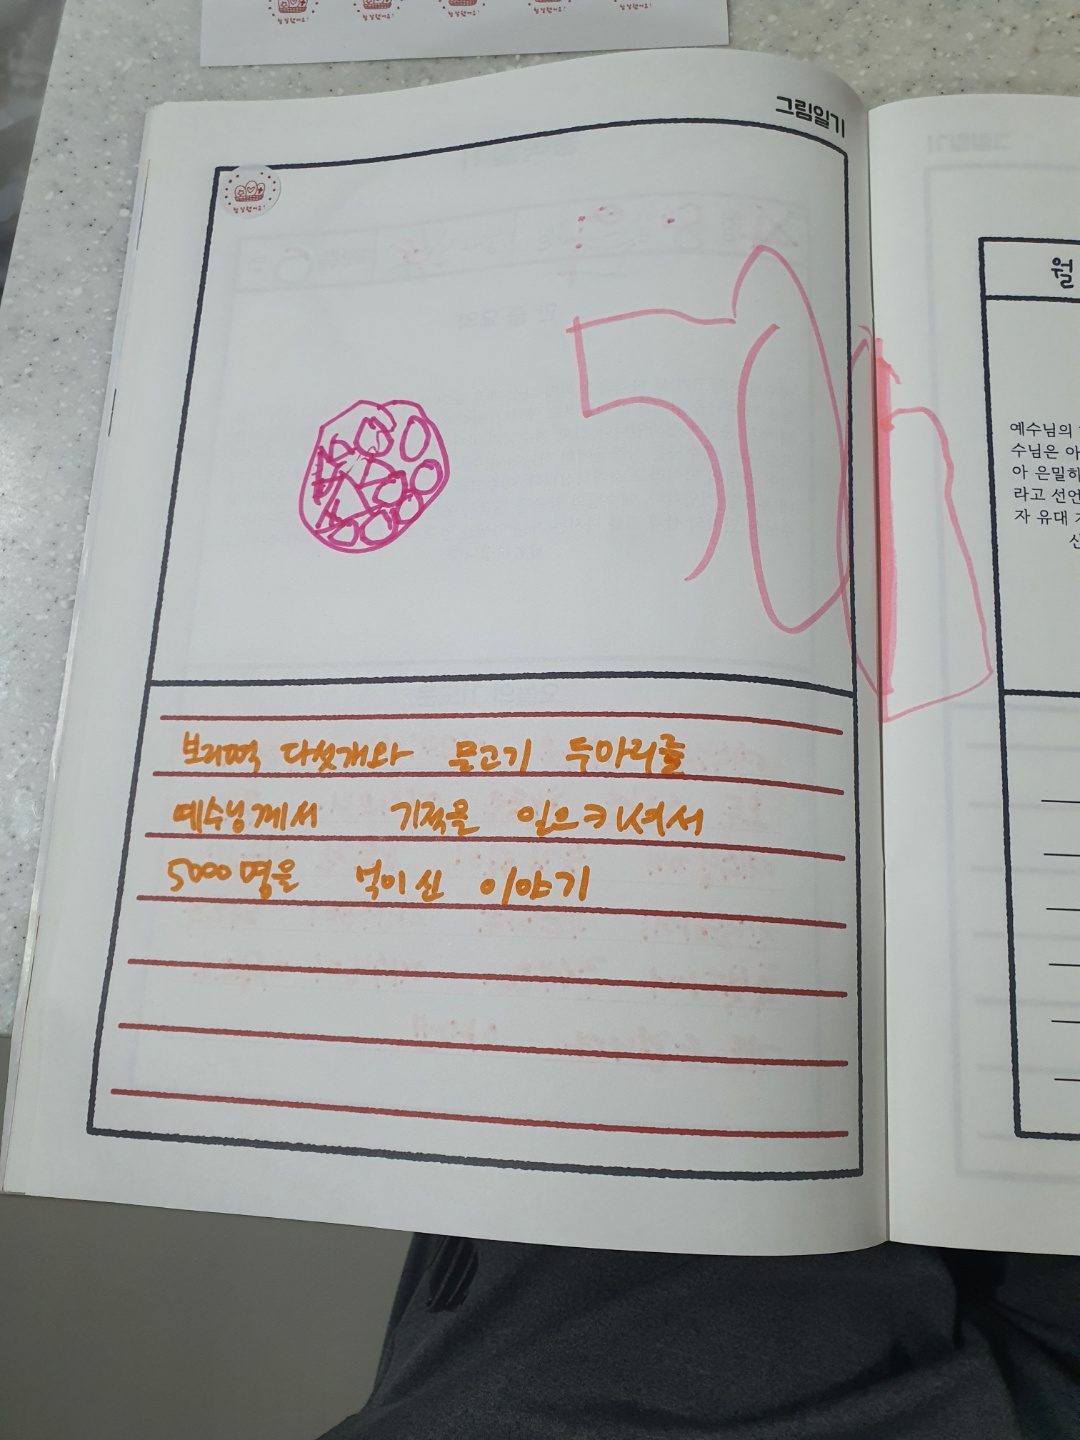 그림일기
참 잘했어요!
50
보리떡 다섯개와 물고기 두마리를
예수님께서 기적을 일으키셔서
5000명을 먹이신 이야기
월
예수님의
수님은 아
아 은밀하
라고 선언
자 유대